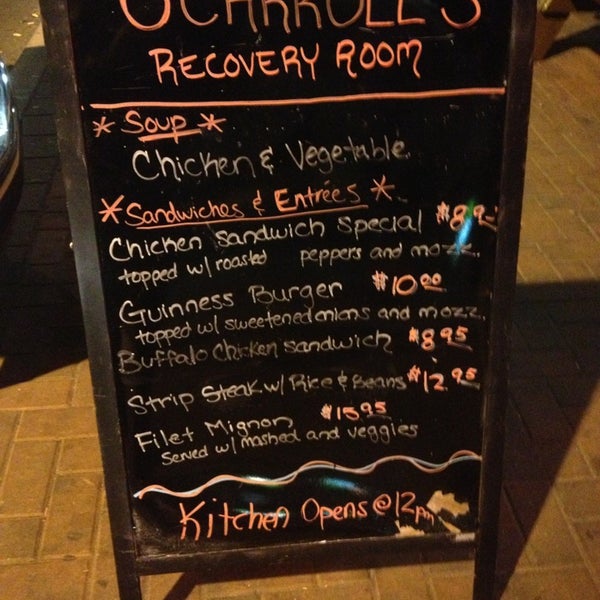 O'CARROLL'S
RECOVERY ROOM
* Soup *
Chicken & Vegetable
* Sandwiches & Entrées *
Chicken Sandwich Special $8.95
topped w/ roasted peppers and mozz.
Guinness Burger $10.00
topped w/ sweetened onions and mozz.
Buffalo Chicken Sandwich $8.95
Strip Steak w/ Rice & Beans $12.95
Filet Mignon $15.95
Served w/ mashed and veggies
Kitchen Opens @ 12pm